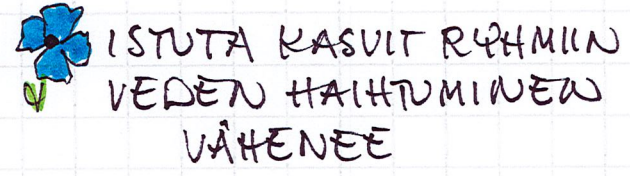 ISTUTA KASVIT RYHMIIN
VEDEN HAIHTUMINEN
VÄHENEE